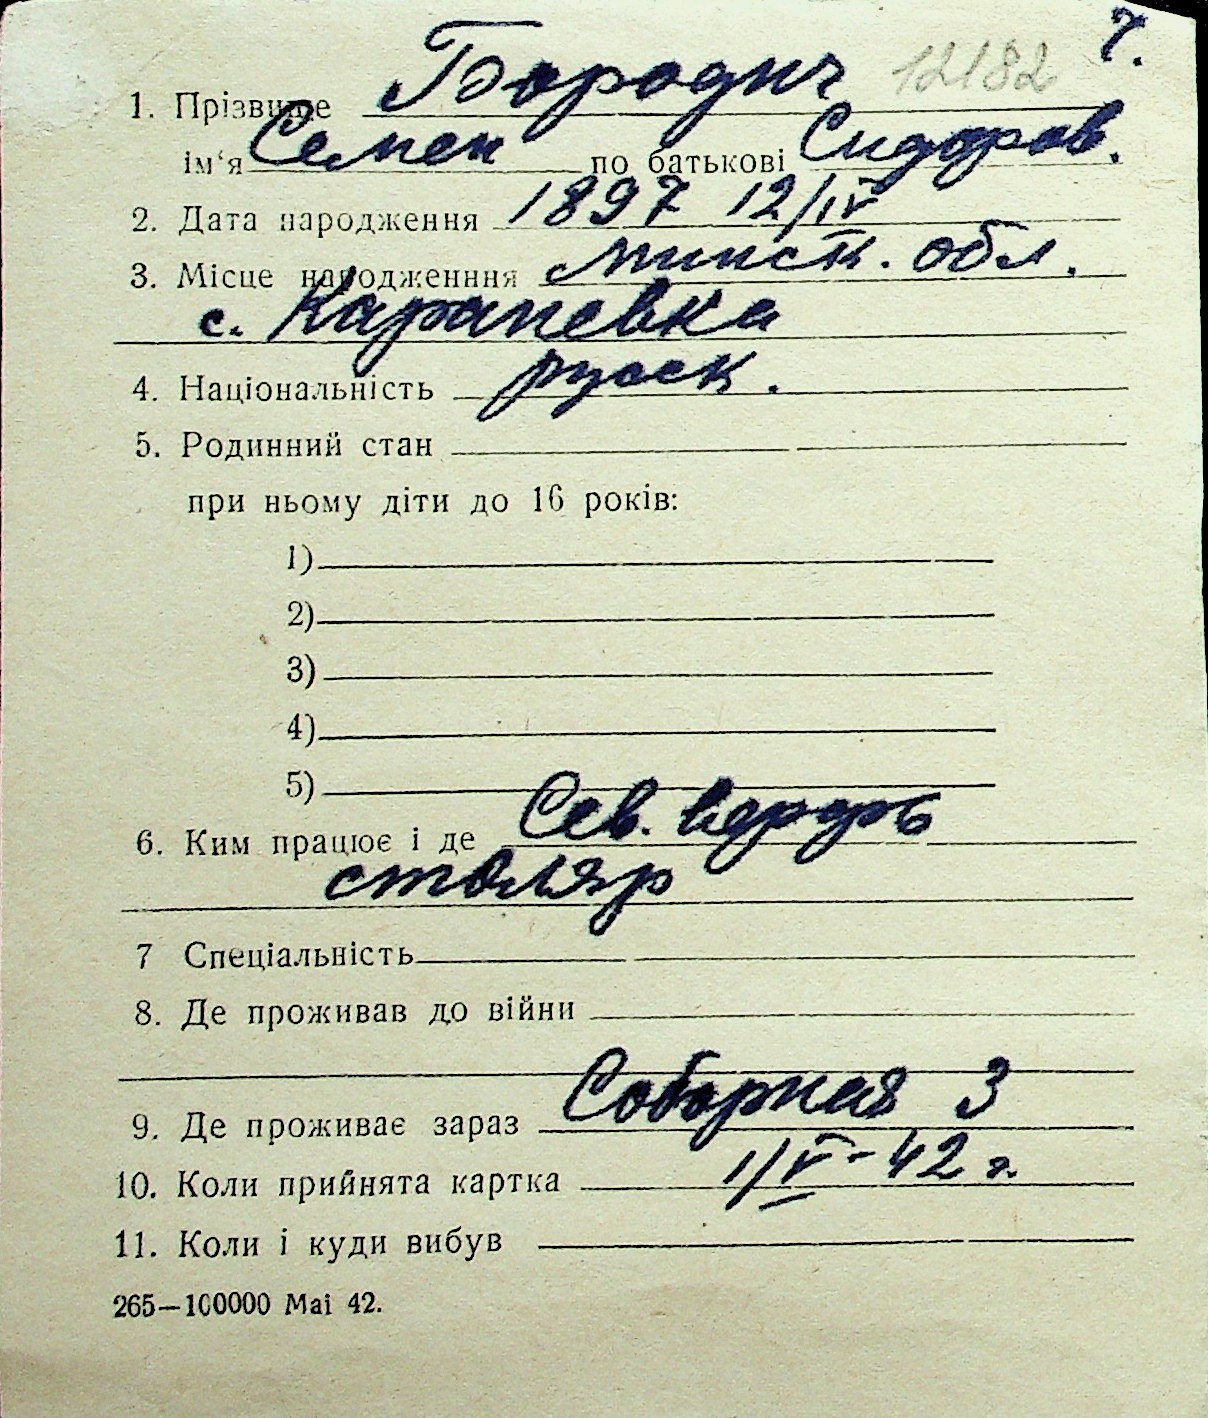 ч.
12182
1. Прізвище Бородич
ім‘я Семен по батькові Сидоров.
2. Дата народження 1897 12/IV
3. Місце народженння Минск. обл.
с. Карапевка
4. Національність русск.
5. Родинний стан
при ньому діти до 16 років:
1)
2)
3)
4)
5)
6. Ким працює і де Сев. верфь
столяр
7 Спеціальність
8. Де проживав до війни
9. Де проживає зараз Соборная 3
10. Коли прийнята картка 1/V-42 г.
11. Коли і куди вибув
265—100000 Mai 42.